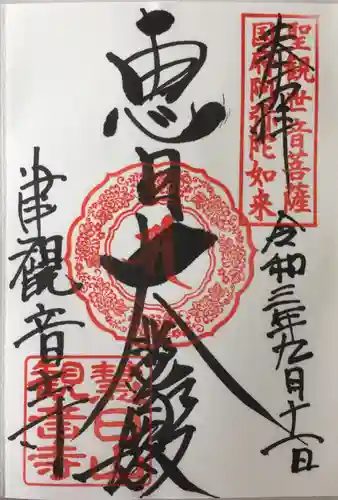 奉拝
聖観世音菩薩
国府阿弥陀如来
令和三年九月十六日
恵日大殿
津観音寺
恵日山
観音寺